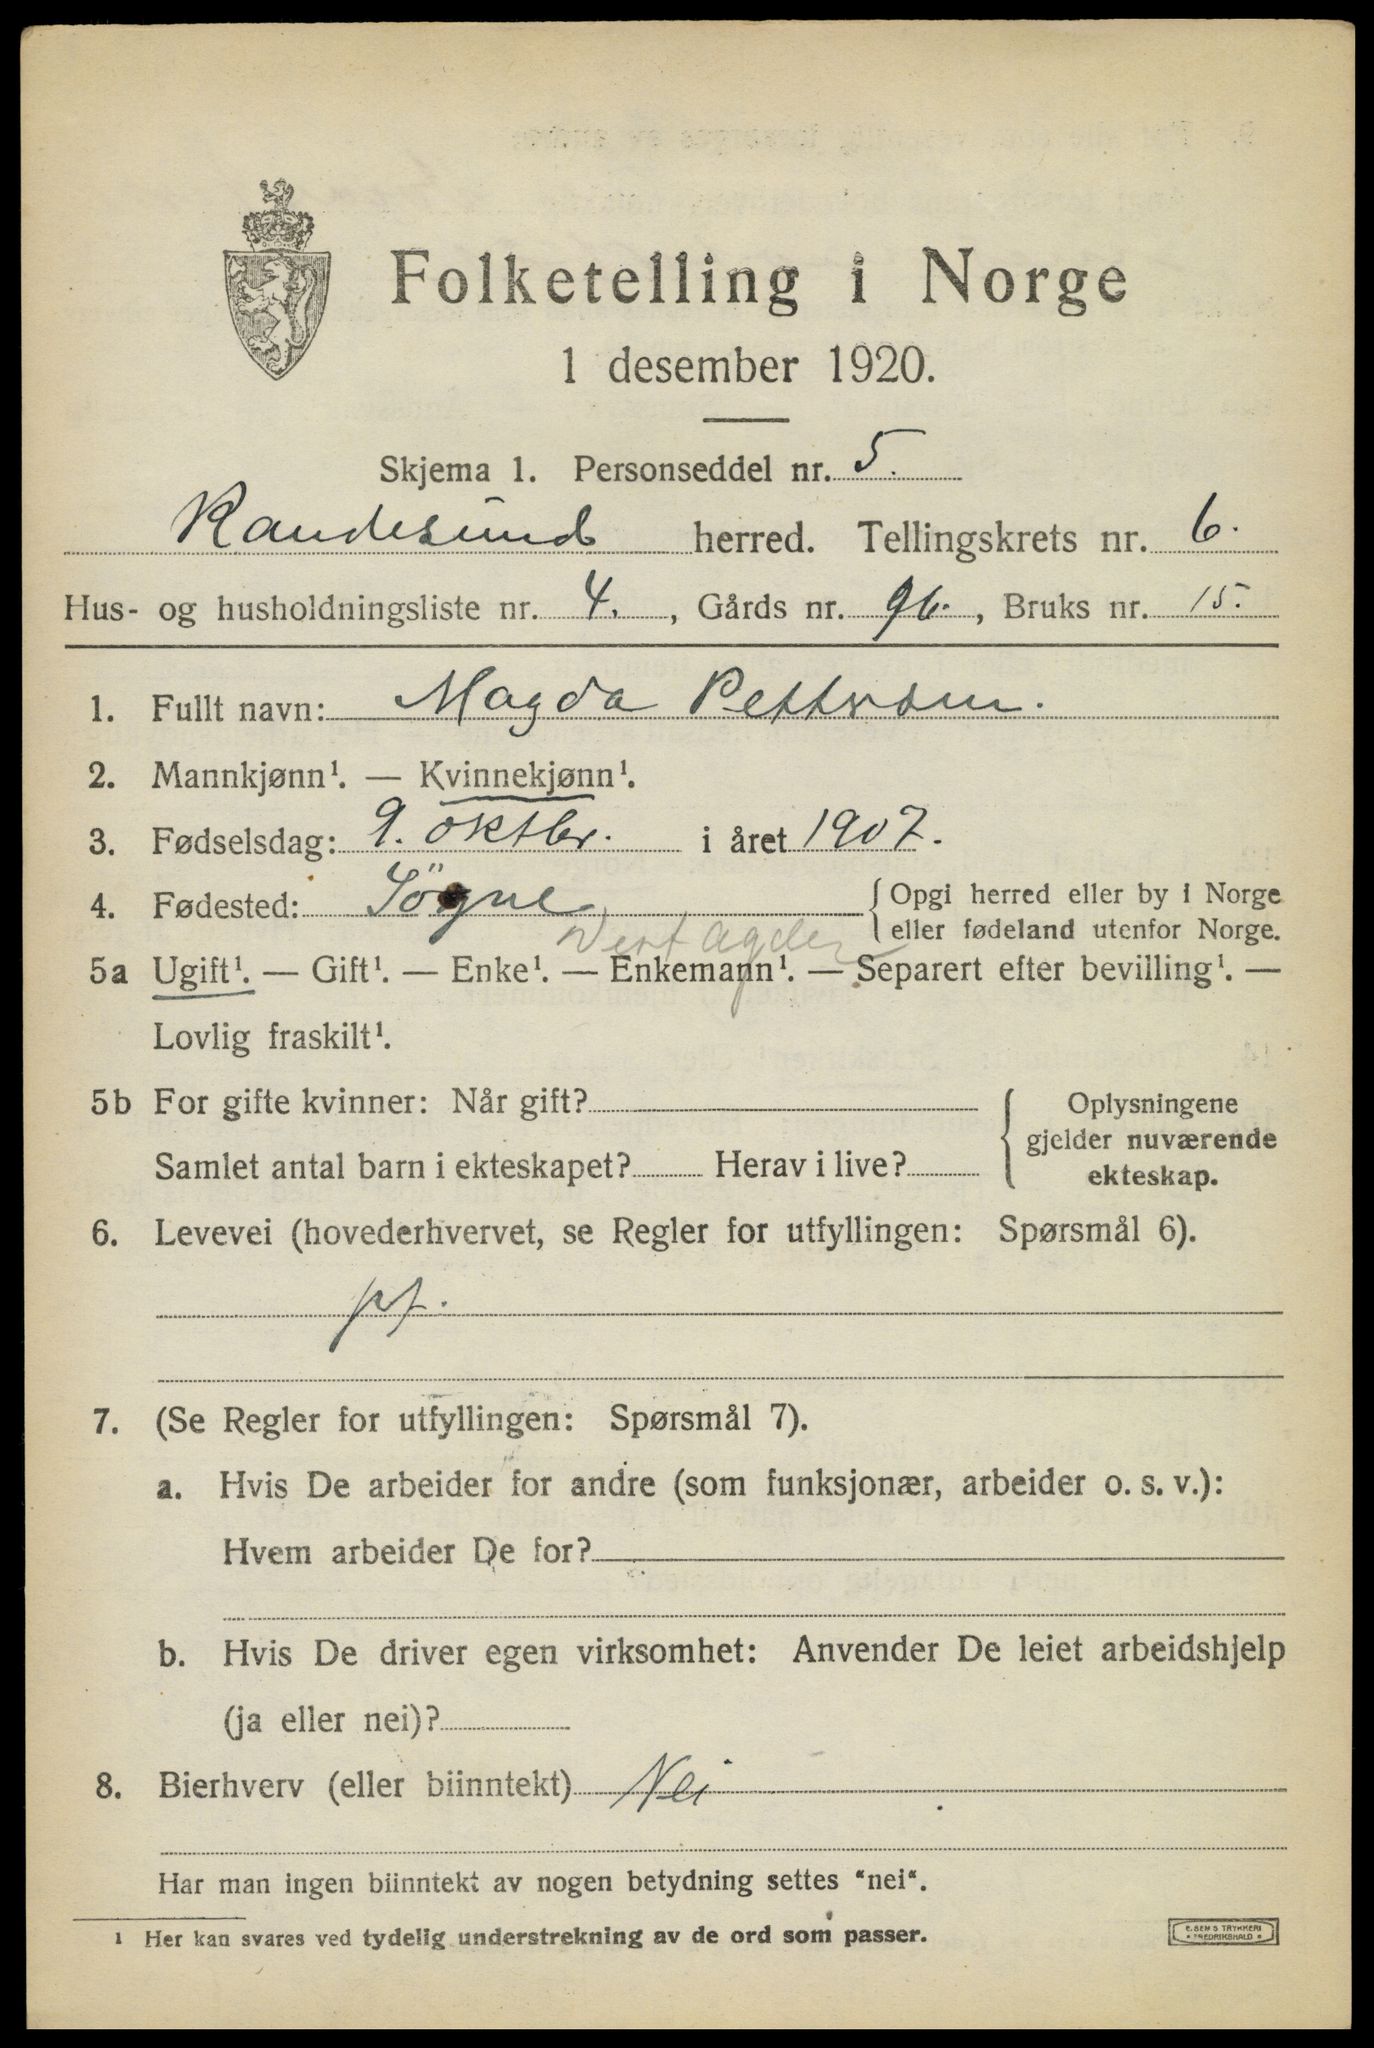 Folketelling i Norge
1 desember 1920.
Skjema 1. Personseddel nr. 5.
Randesund herred. Tellingskrets nr. 6.
Hus- og husholdningsliste nr. 4., Gårds nr. 96., Bruks nr. 15.
1. Fullt navn: Magda Pettersen.
2. Mannkjønn¹. — Kvinnekjønn¹.
3. Fødselsdag: 9. oktbr. i året 1907.
4. Fødested: Sögne { Opgi herred eller by i Norge
eller fødeland utenfor Norge.
Vest Agder
5a Ugift¹. — Gift¹. — Enke¹. — Enkemann¹. — Separert efter bevilling¹. —
Lovlig fraskilt¹.
5b For gifte kvinner: Når gift? { Oplysningene
gjelder nuværende
Samlet antal barn i ekteskapet? Herav i live? ekteskap.
6. Levevei (hovederhvervet, se Regler for utfyllingen: Spørsmål 6).
pf.
7. (Se Regler for utfyllingen: Spørsmål 7).
a. Hvis De arbeider for andre (som funksjonær, arbeider o. s. v.):
Hvem arbeider De for?
b. Hvis De driver egen virksomhet: Anvender De leiet arbeidshjelp
(ja eller nei)?
8. Bierhverv (eller biinntekt) Nei
Har man ingen biinntekt av nogen betydning settes "nei".
¹ Her kan svares ved tydelig understrekning av de ord som passer.
E. SEM'S TRYKKERI
FREDRIKSHALD